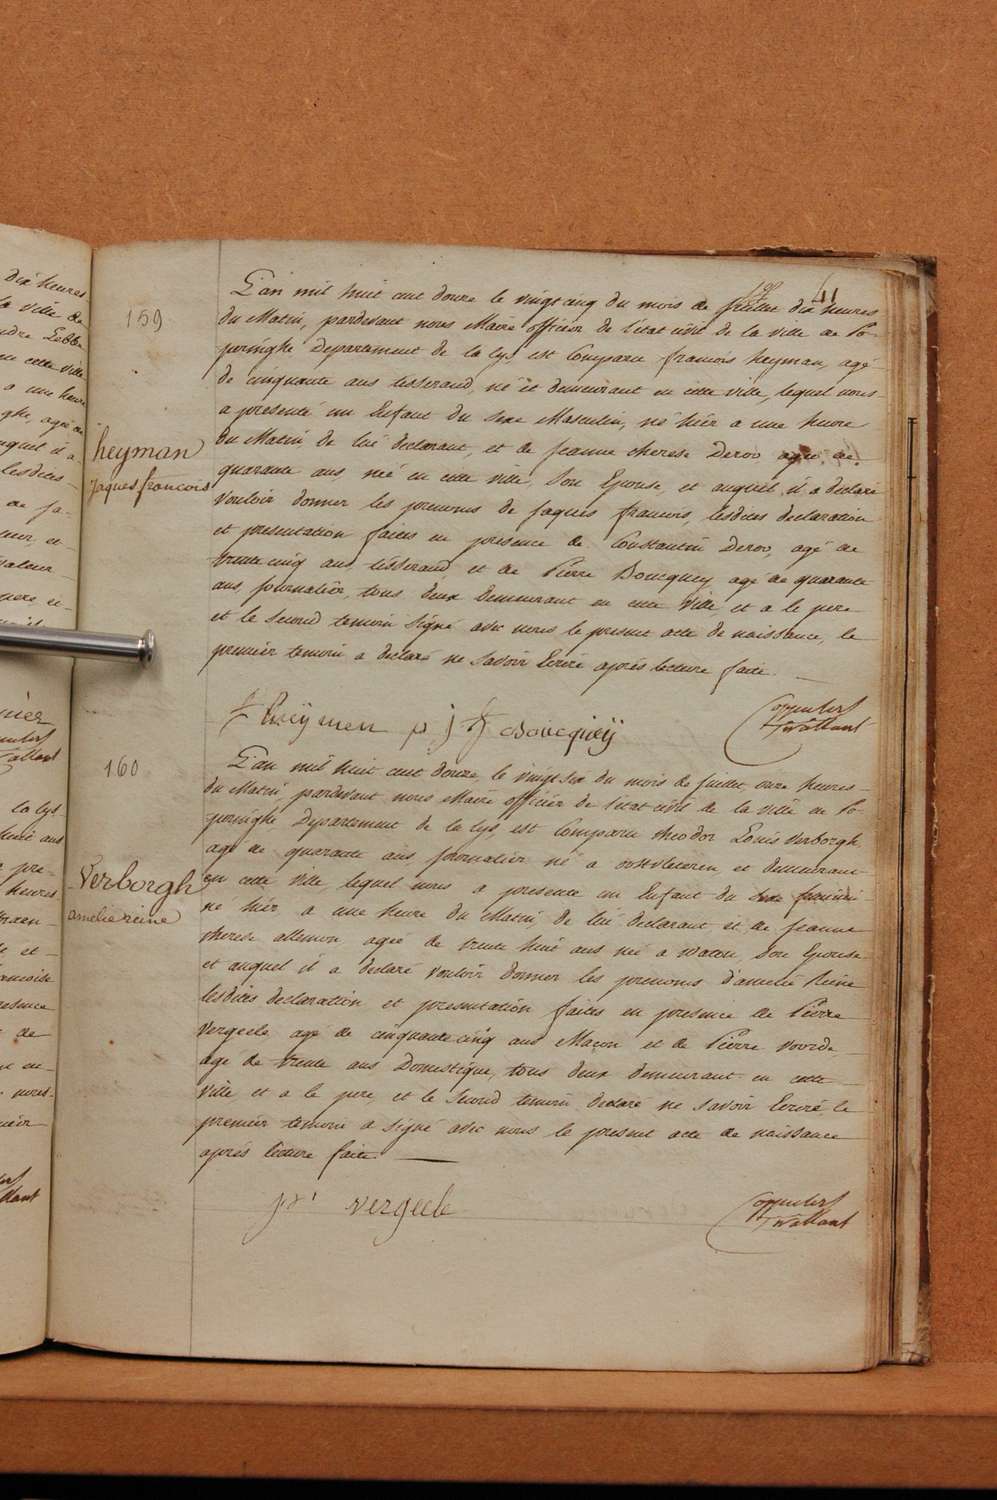 41
159
L'an mil huit cent douze le vingt cinq du mois de juillet dix heures
du Matin, pardevant nous Maire officier de l'état civil de la ville de Po-
peringhe Departement de la Lys est Comparu francois heyman, agé
de cinquante ans tisserand, né et demeurant en cette ville, lequel nous
a presenté un Enfant du sexe Masculin, né hier a une heure
du Matin de lui declarant, et de jeanne therese Deroo agée de
heyman
jaques francois
quarante ans, née en cette ville, Son Epouse, et auquel il a declaré
vouloir donner les prenoms de jaques francois, lesdites declaration
et presentation faites en presence de Constantin Deroo, agé de
trente cinq ans tisserand et de Pierre Boucquey agé de quarante
ans, journalier, tous deux demeurant en cette ville et a le pere
et le second temoin signé avec nous le present acte de naissance, le
premier temoin a declaré ne savoir Ecrire aprés lecture faite.
f heÿmen p j Boucqueÿ
160
L'an mil huit cent douze, le vingt six du mois de juillet onze heures
du Matin pardevant nous Maire officier de l'état civil de la ville de Po-
peringhe, Departement de la Lys est Comparu theodor Louis Verborgh
agé de quarante ans journalier né a oostvleteren et demeurant
Verborgh
amelie reine
en cette Ville, lequel nous a presenté un Enfant du Sexe feminin
né hier a une heure du Matin, de lui declarant et de jeanne
therese allemon agée de trente huit ans née a watou, Son Epouse
et auquel il a declaré vouloir donner les prenoms d'amelie Reine
lesdites declaration et presentation faites en presence de Pierre
Vergeele agé de cinquante cinq ans Maçon et de Pierre voorde
agé de trente ans Domestique, tous deux demeurant en cette
Ville et a le pere, et le second temoin declaré ne savoir Ecrire le
premier temoin a signé avec nous le present acte de naissance
aprés lecture faite.
vergeele